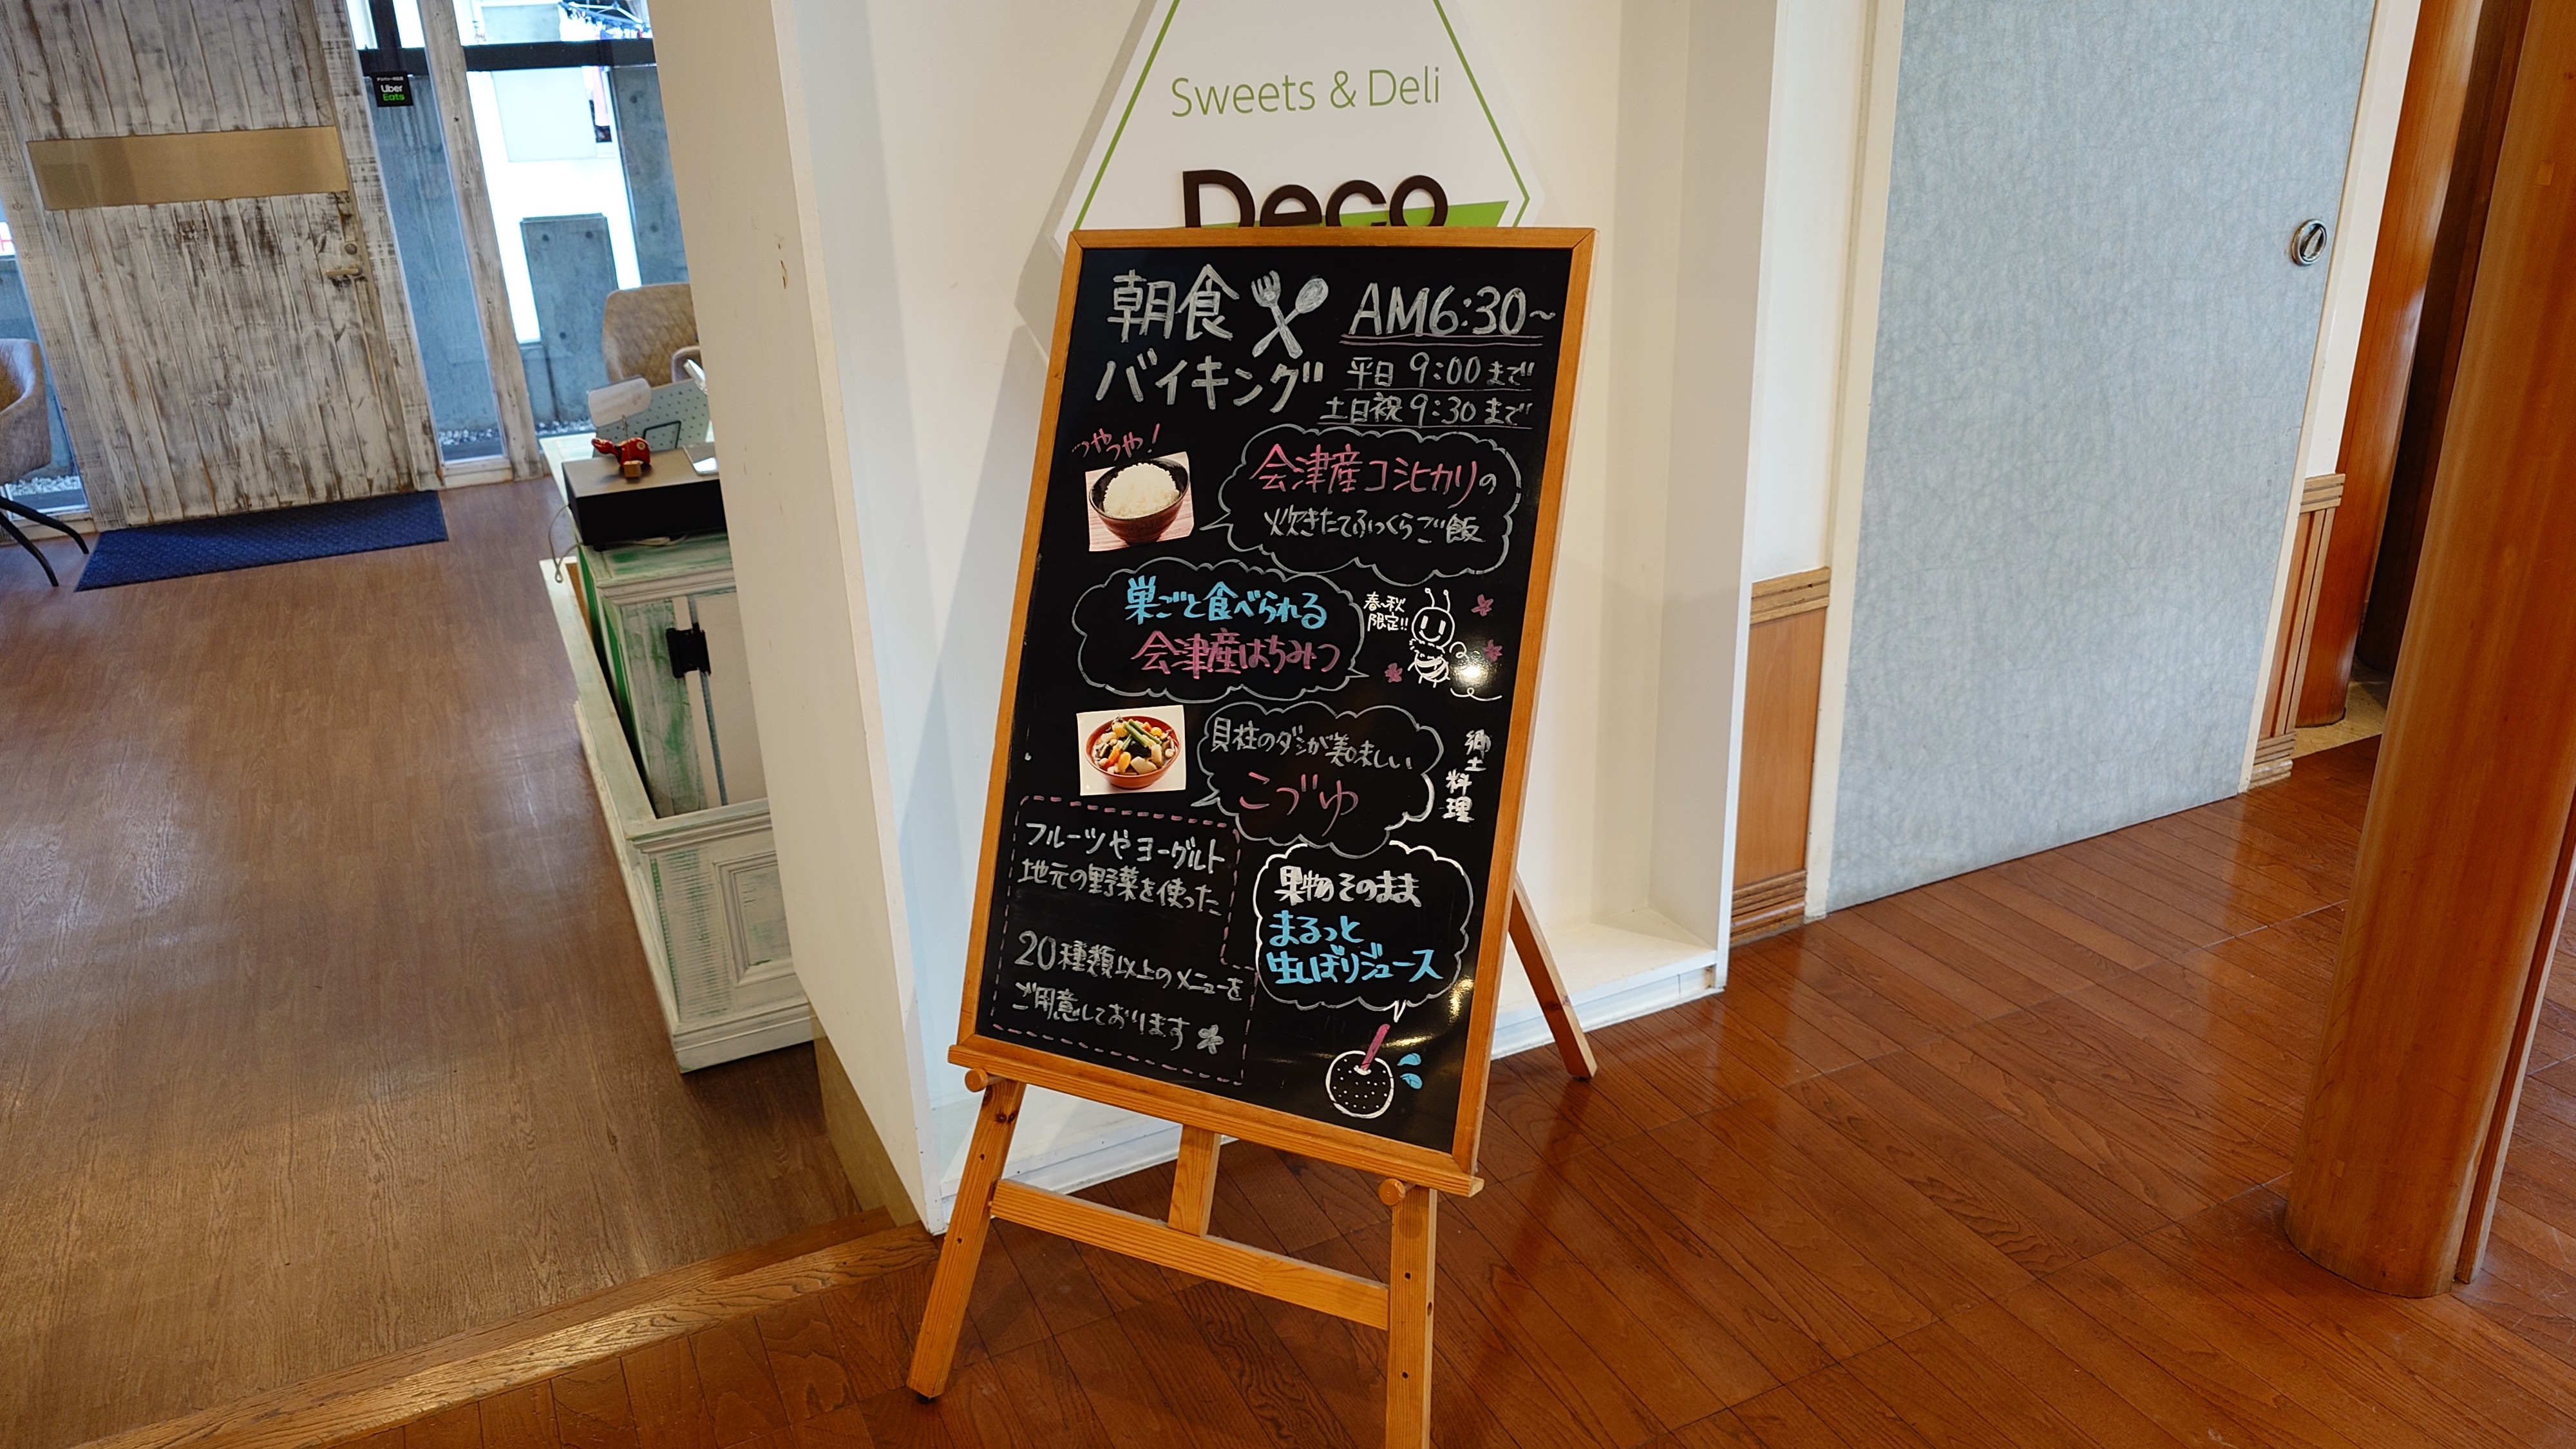 デリバリー対応店
Uber
Eats
Sweets & Deli
Deco
朝食
バイキング
AM6:30~
平日 9:00まで
土日祝 9:30まで
つやつや!
会津産コシヒカリの
炊きたてふっくらご飯
巣ごと食べられる
会津産はちみつ
春~秋
限定!!
貝柱のダシが美味しい
こづゆ
郷土
料理
フルーツやヨーグルト
地元の野菜を使った
20種類以上のメニューを
ご用意しております
果物そのまま
まるっと
生しぼりジュース